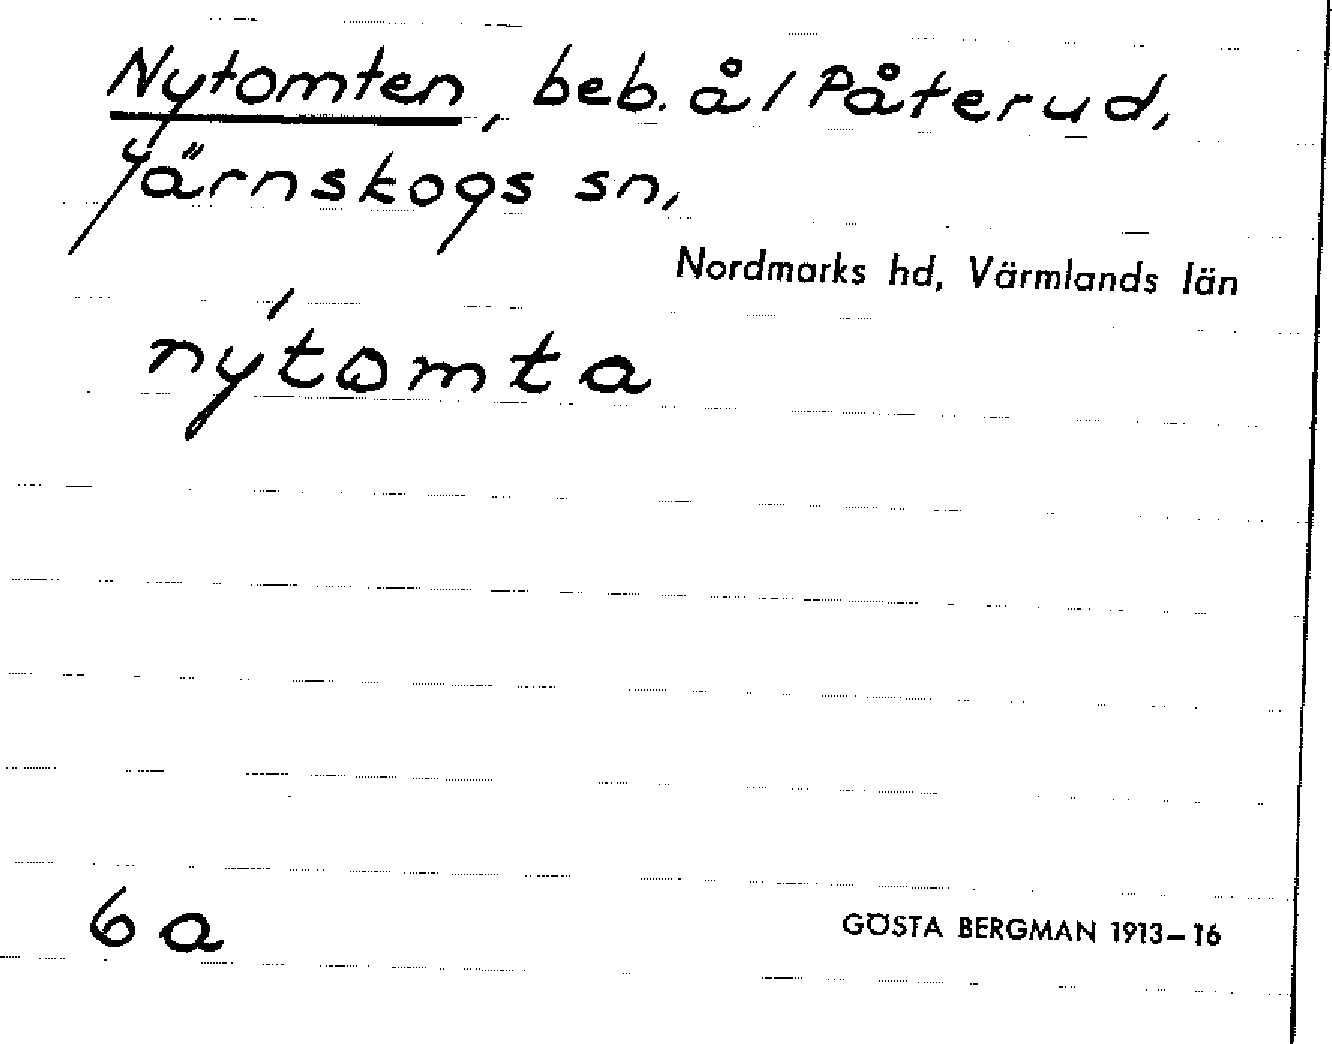 Nytomten, beb. å/ Påterud,
Järnskogs sn,
Nordmarks hd, Värmlands län
ny´tomta
6a
GÖSTA BERGMAN 1913–16